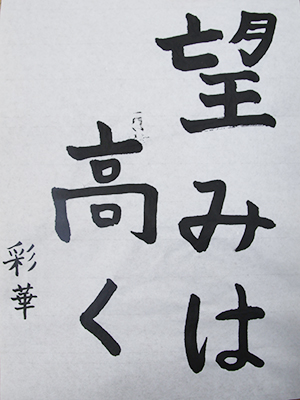 望みは
高く
彩華